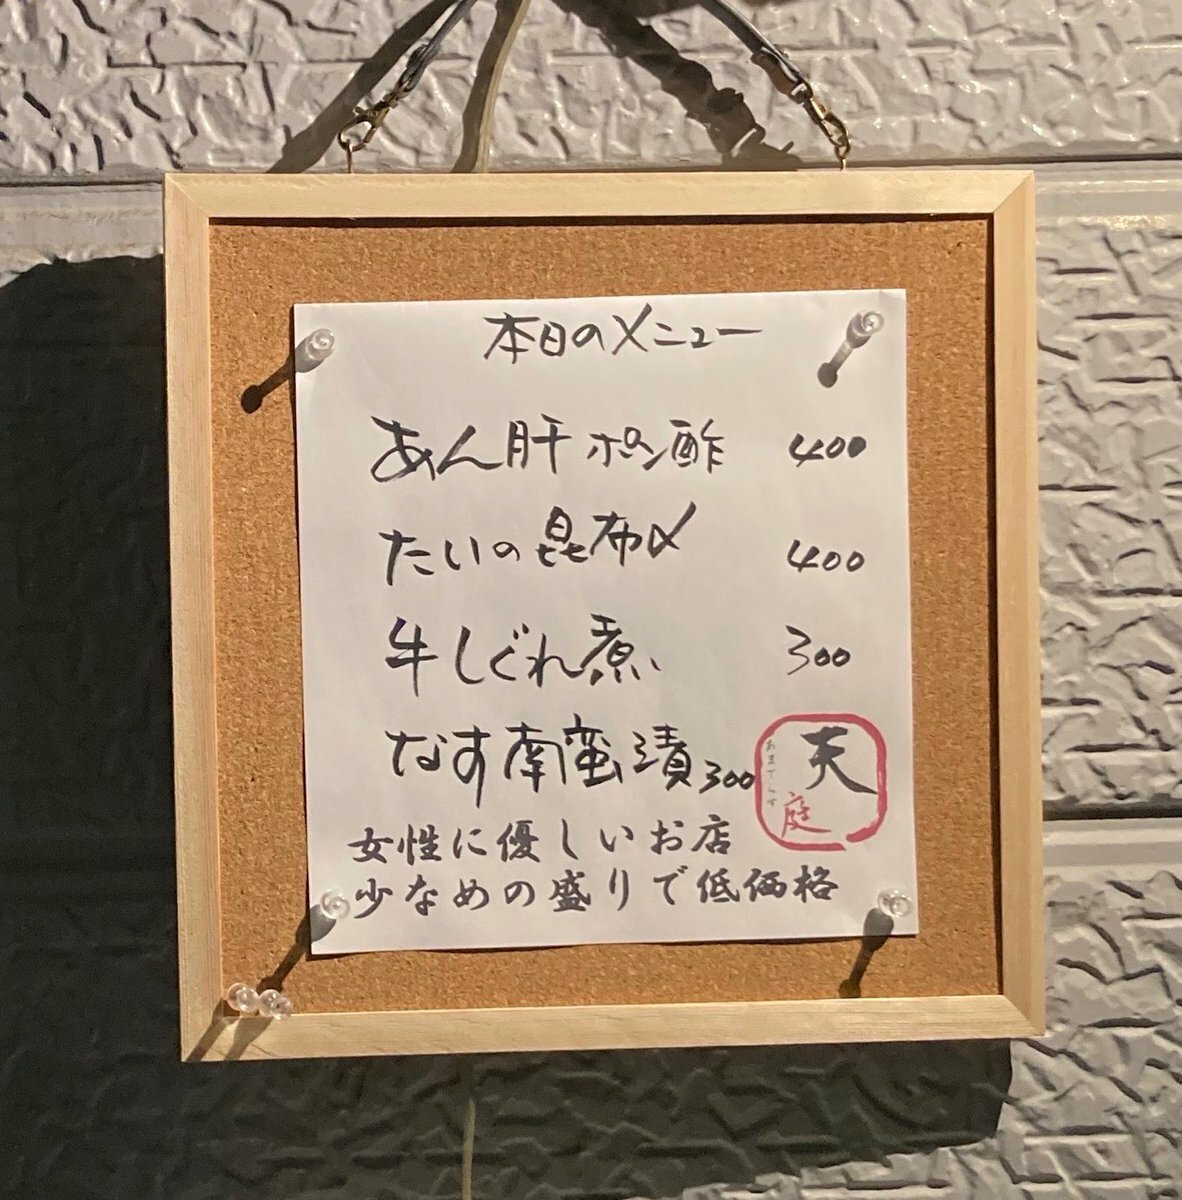 本日のメニュー
あん肝ポン酢 400
たいの昆布〆 400
牛しぐれ煮 300
なす南蛮漬 300
天庭
あまてらす
女性に優しいお店
少なめの盛りで低価格